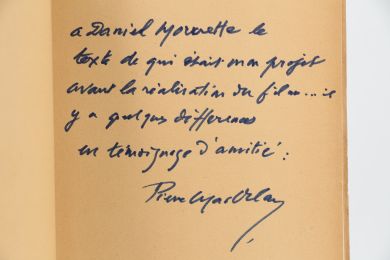 a Daniel Morvette le
texte de qui était mon projet
avant la réalisation du film... il
y a quelques différences
en témoignage d'amitié :
Pierre Mac Orlan